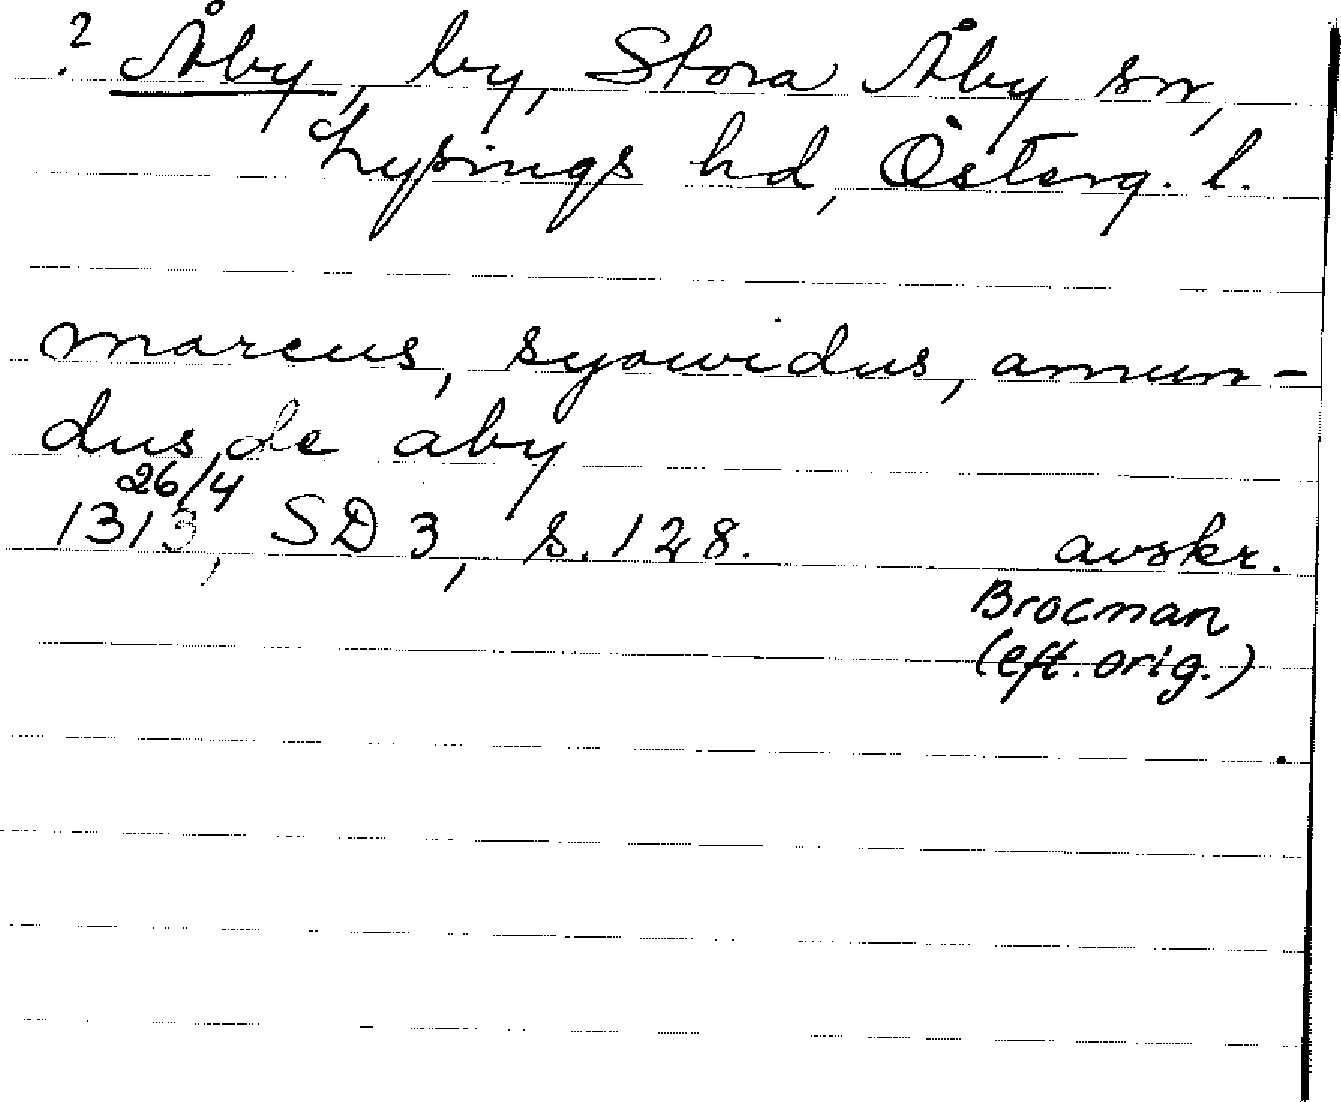 ? Åby, by, Stora Åby sn,
Lysings hd, Österg. l.
marcus, syowidus, amun-
dus, de aby
26/4
1313, SD 3, s. 128. avskr.
Brocman
(eft. orig.)